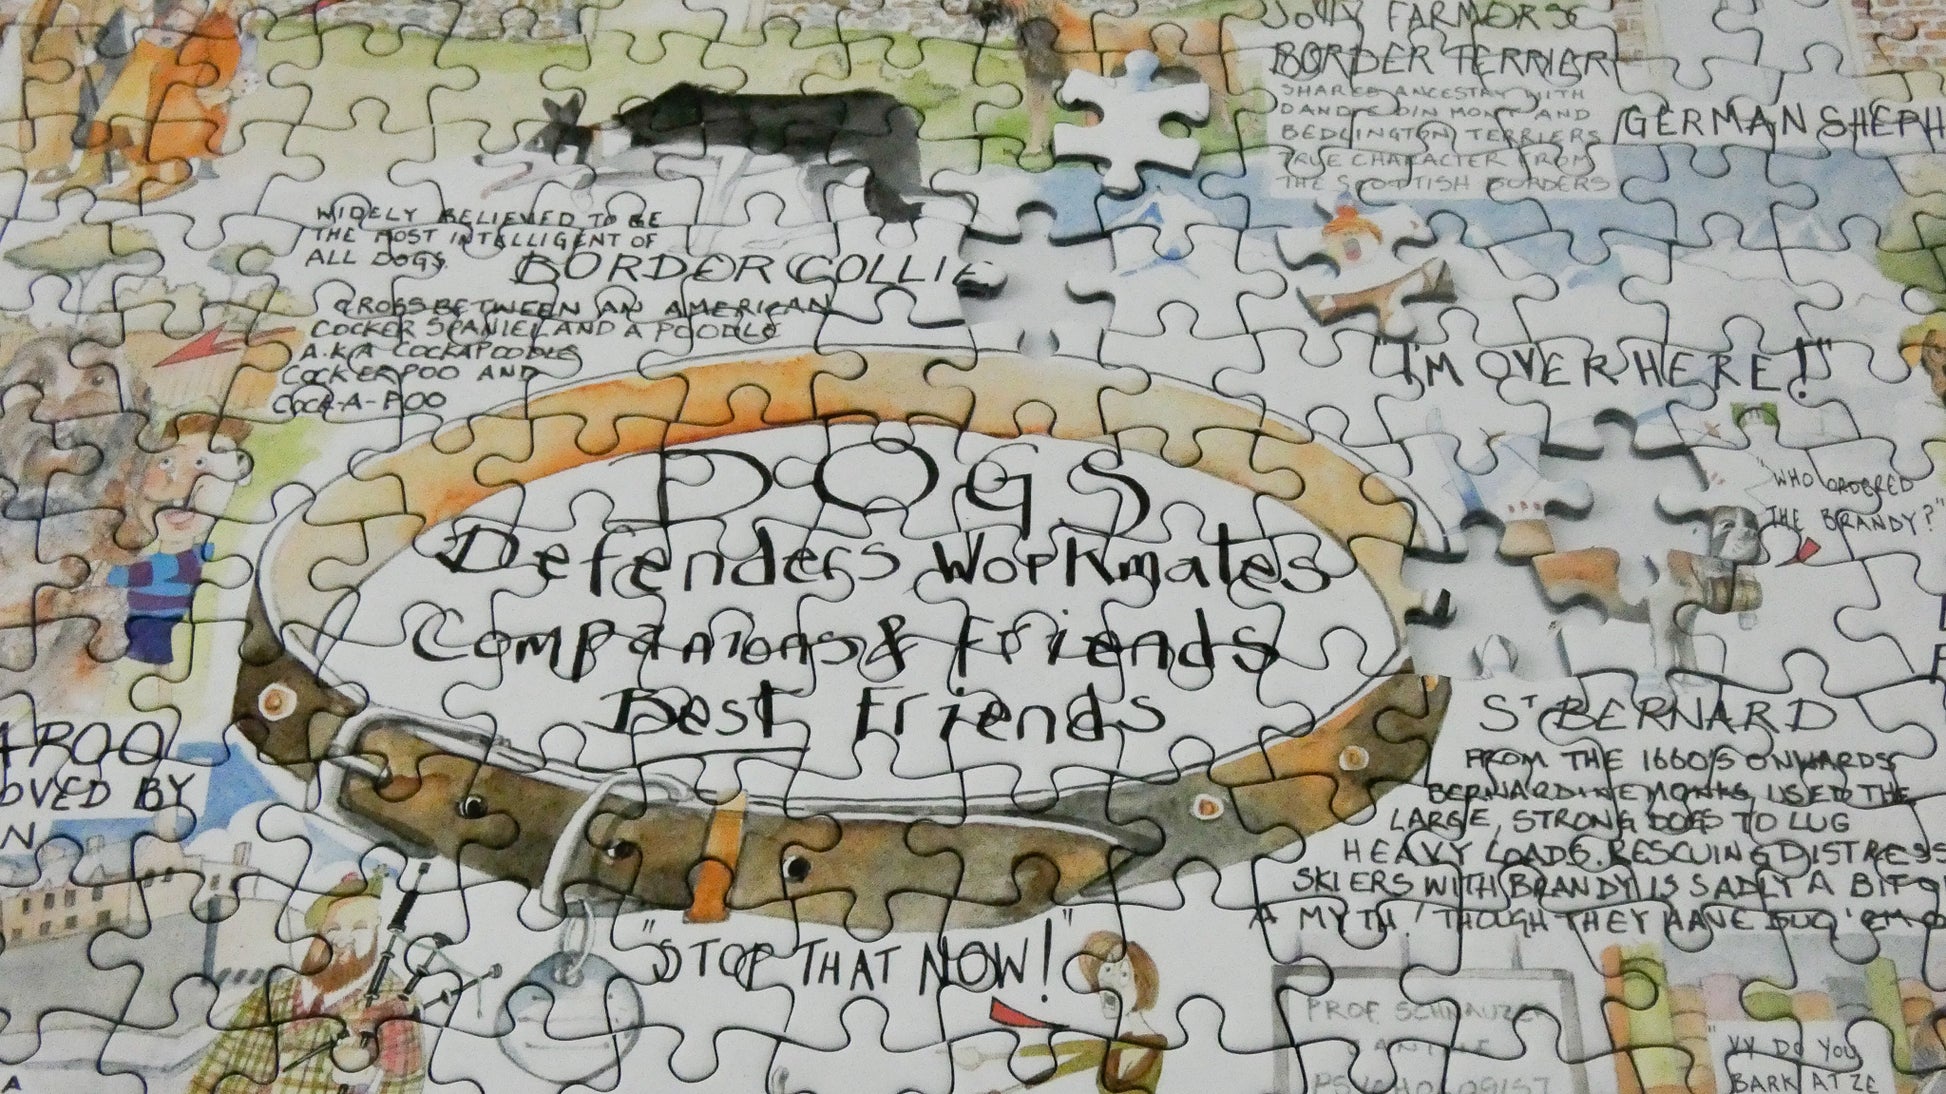 JOLLY FARMERS
BORDER TERRIER
SHARES ANCESTRY WITH
DANDIE DINMONT AND
BEDLINGTON TERRIERS
TRUE CHARACTER FROM
THE SCOTTISH BORDERS
GERMAN SHEPH
WIDELY BELIEVED TO BE
THE MOST INTELLIGENT OF
ALL DOGS.
BORDER COLLIE
CROSS BETWEEN AN AMERICAN
COCKER SPANIEL AND A POODLE
A.K.A COCKAPOODLE
COCKERPOO AND
COCK-A-POO
"I'M OVER HERE!"
"WHO ORDERED
THE BRANDY?"
DOGS
Defenders Workmates
Companions & Friends
Best Friends
APOO
OVED BY
N
ST BERNARD
FROM THE 1660'S ONWARDS
BERNARDINE MONKS USED THE
LARGE, STRONG DOGS TO LUG
HEAVY LOADS. RESCUING DISTRESS
SKIERS WITH BRANDY IS SADLY A BIT O
A MYTH! THOUGH THEY HAVE DUG 'EM O
"STOP THAT NOW!"
PROF. SCHNAUZER
CANINE
PSYCHOLOGIST
"VY DO YOU
BARK AT ZE
A